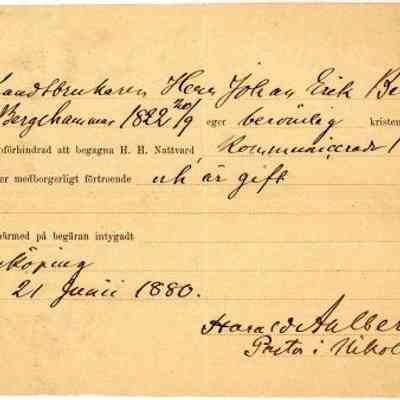 Landtbrukaren Herr Johan Erik Be
Bergshammar 1822 20/9 eger berömlig kristen
oförhindrad att begagna H. H. Nattvard, kommunicerade
er medborgerligt förtroende och är gift
härmed på begäran intygadt
köping
21 Junii 1880.
Harald Aulber
Pastor i Nikol